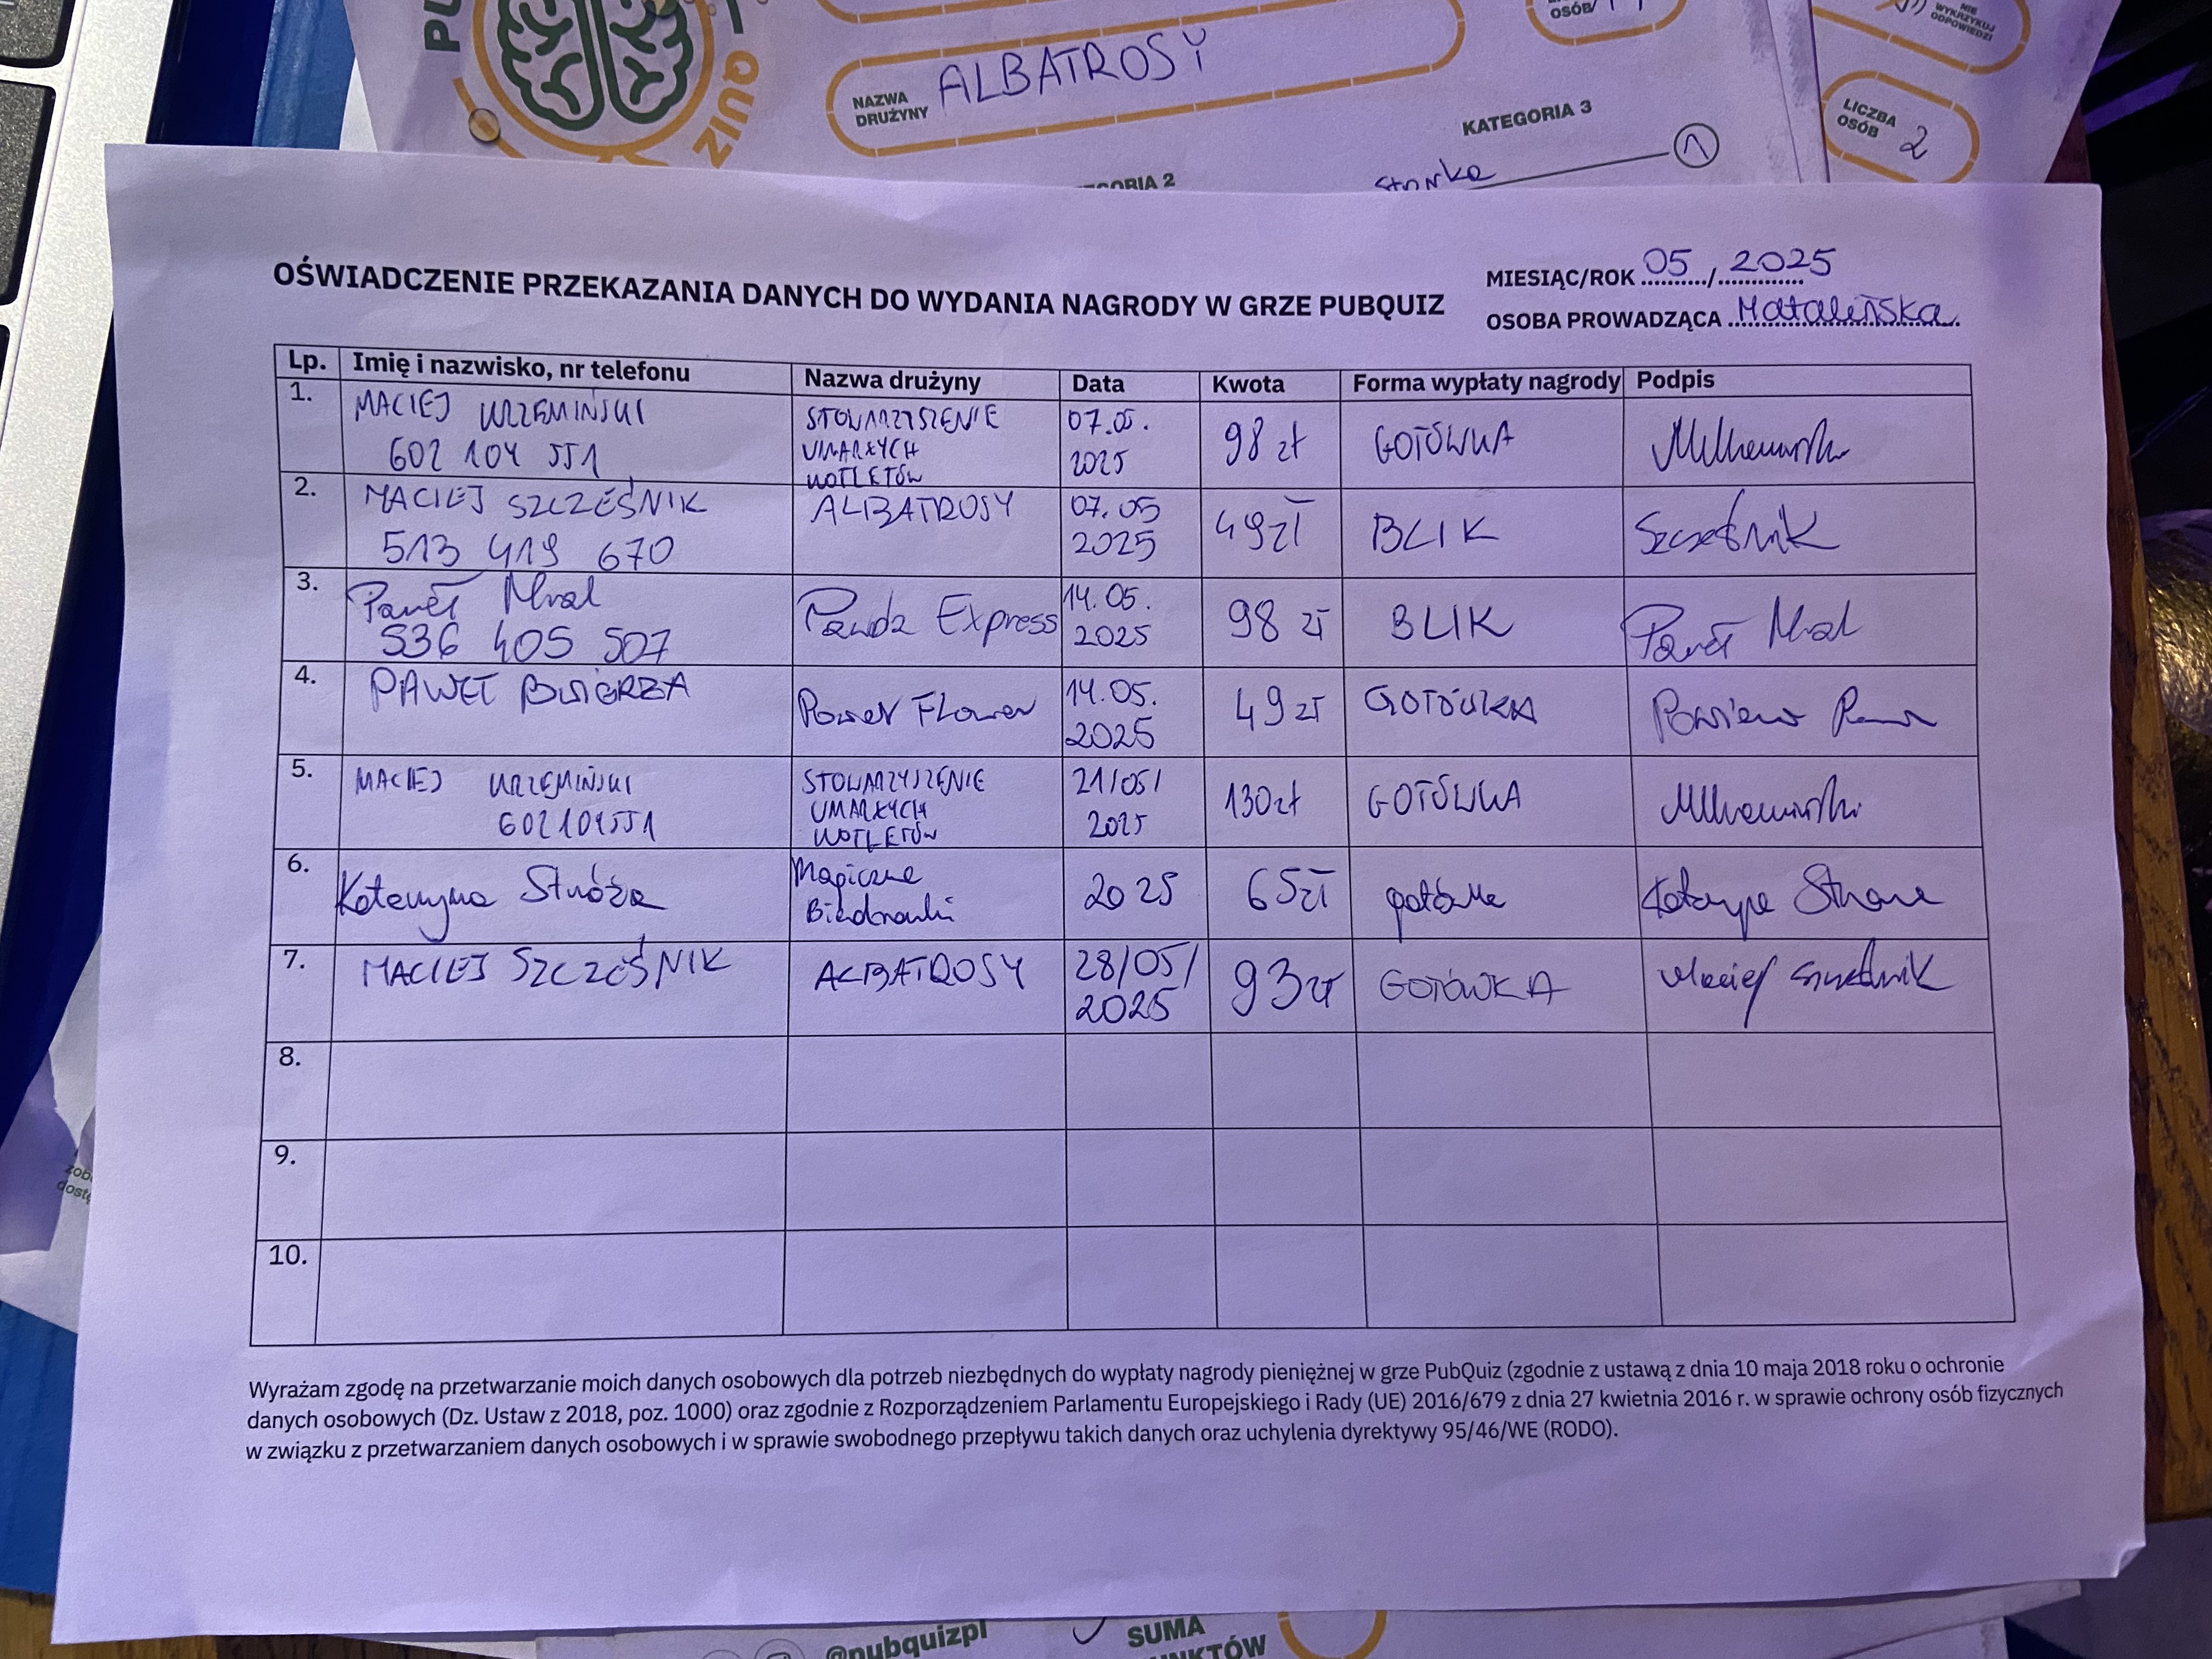 PU
QUIZ
OSÓB
NIE WYKRZYKUJ ODPOWIEDZI
NAZWA DRUŻYNY ALBATROSY
LICZBA OSÓB 2
KATEGORIA 3
GORIA 2
Stonka 1
OŚWIADCZENIE PRZEKAZANIA DANYCH DO WYDANIA NAGRODY W GRZE PUBQUIZ
MIESIĄC/ROK 05 / 2025
OSOBA PROWADZĄCA Mataleńska
Lp. Imię i nazwisko, nr telefonu Nazwa drużyny Data Kwota Forma wypłaty nagrody Podpis
1. MACIEJ KRZEMIŃSKI 602 104 551 STOWARZYSZENIE UMARŁYCH KOTLETÓW 07.05. 2025 98 zł GOTÓWKA
2. MACIEJ SZCZEŚNIK 513 419 670 ALBATROSY 07.05 2025 49 zł BLIK Szcześnik
3. Paweł Mral 536 405 507 Panda Express 14.05. 2025 98 zł BLIK Paweł Mral
4. PAWEŁ Power Flower 14.05. 2025 49 zł GOTÓWKA
5. MACIEJ KRZEMIŃSKI 602104551 STOWARZYSZENIE UMARŁYCH KOTLETÓW 21/05/ 2025 130 zł GOTÓWKA
6. Katarzyna Stróża Magiczne Biedronki 2025 65 zł gotówka Katarzyna
7. MACIEJ SZCZEŚNIK ALBATROSY 28/05/ 2025 93 zł GOTÓWKA Maciej Szcześnik
8.
9.
10.
Wyrażam zgodę na przetwarzanie moich danych osobowych dla potrzeb niezbędnych do wypłaty nagrody pieniężnej w grze PubQuiz (zgodnie z ustawą z dnia 10 maja 2018 roku o ochronie
danych osobowych (Dz. Ustaw z 2018, poz. 1000) oraz zgodnie z Rozporządzeniem Parlamentu Europejskiego i Rady (UE) 2016/679 z dnia 27 kwietnia 2016 r. w sprawie ochrony osób fizycznych
w związku z przetwarzaniem danych osobowych i w sprawie swobodnego przepływu takich danych oraz uchylenia dyrektywy 95/46/WE (RODO).
@pubquizpl
SUMA
NKTÓW